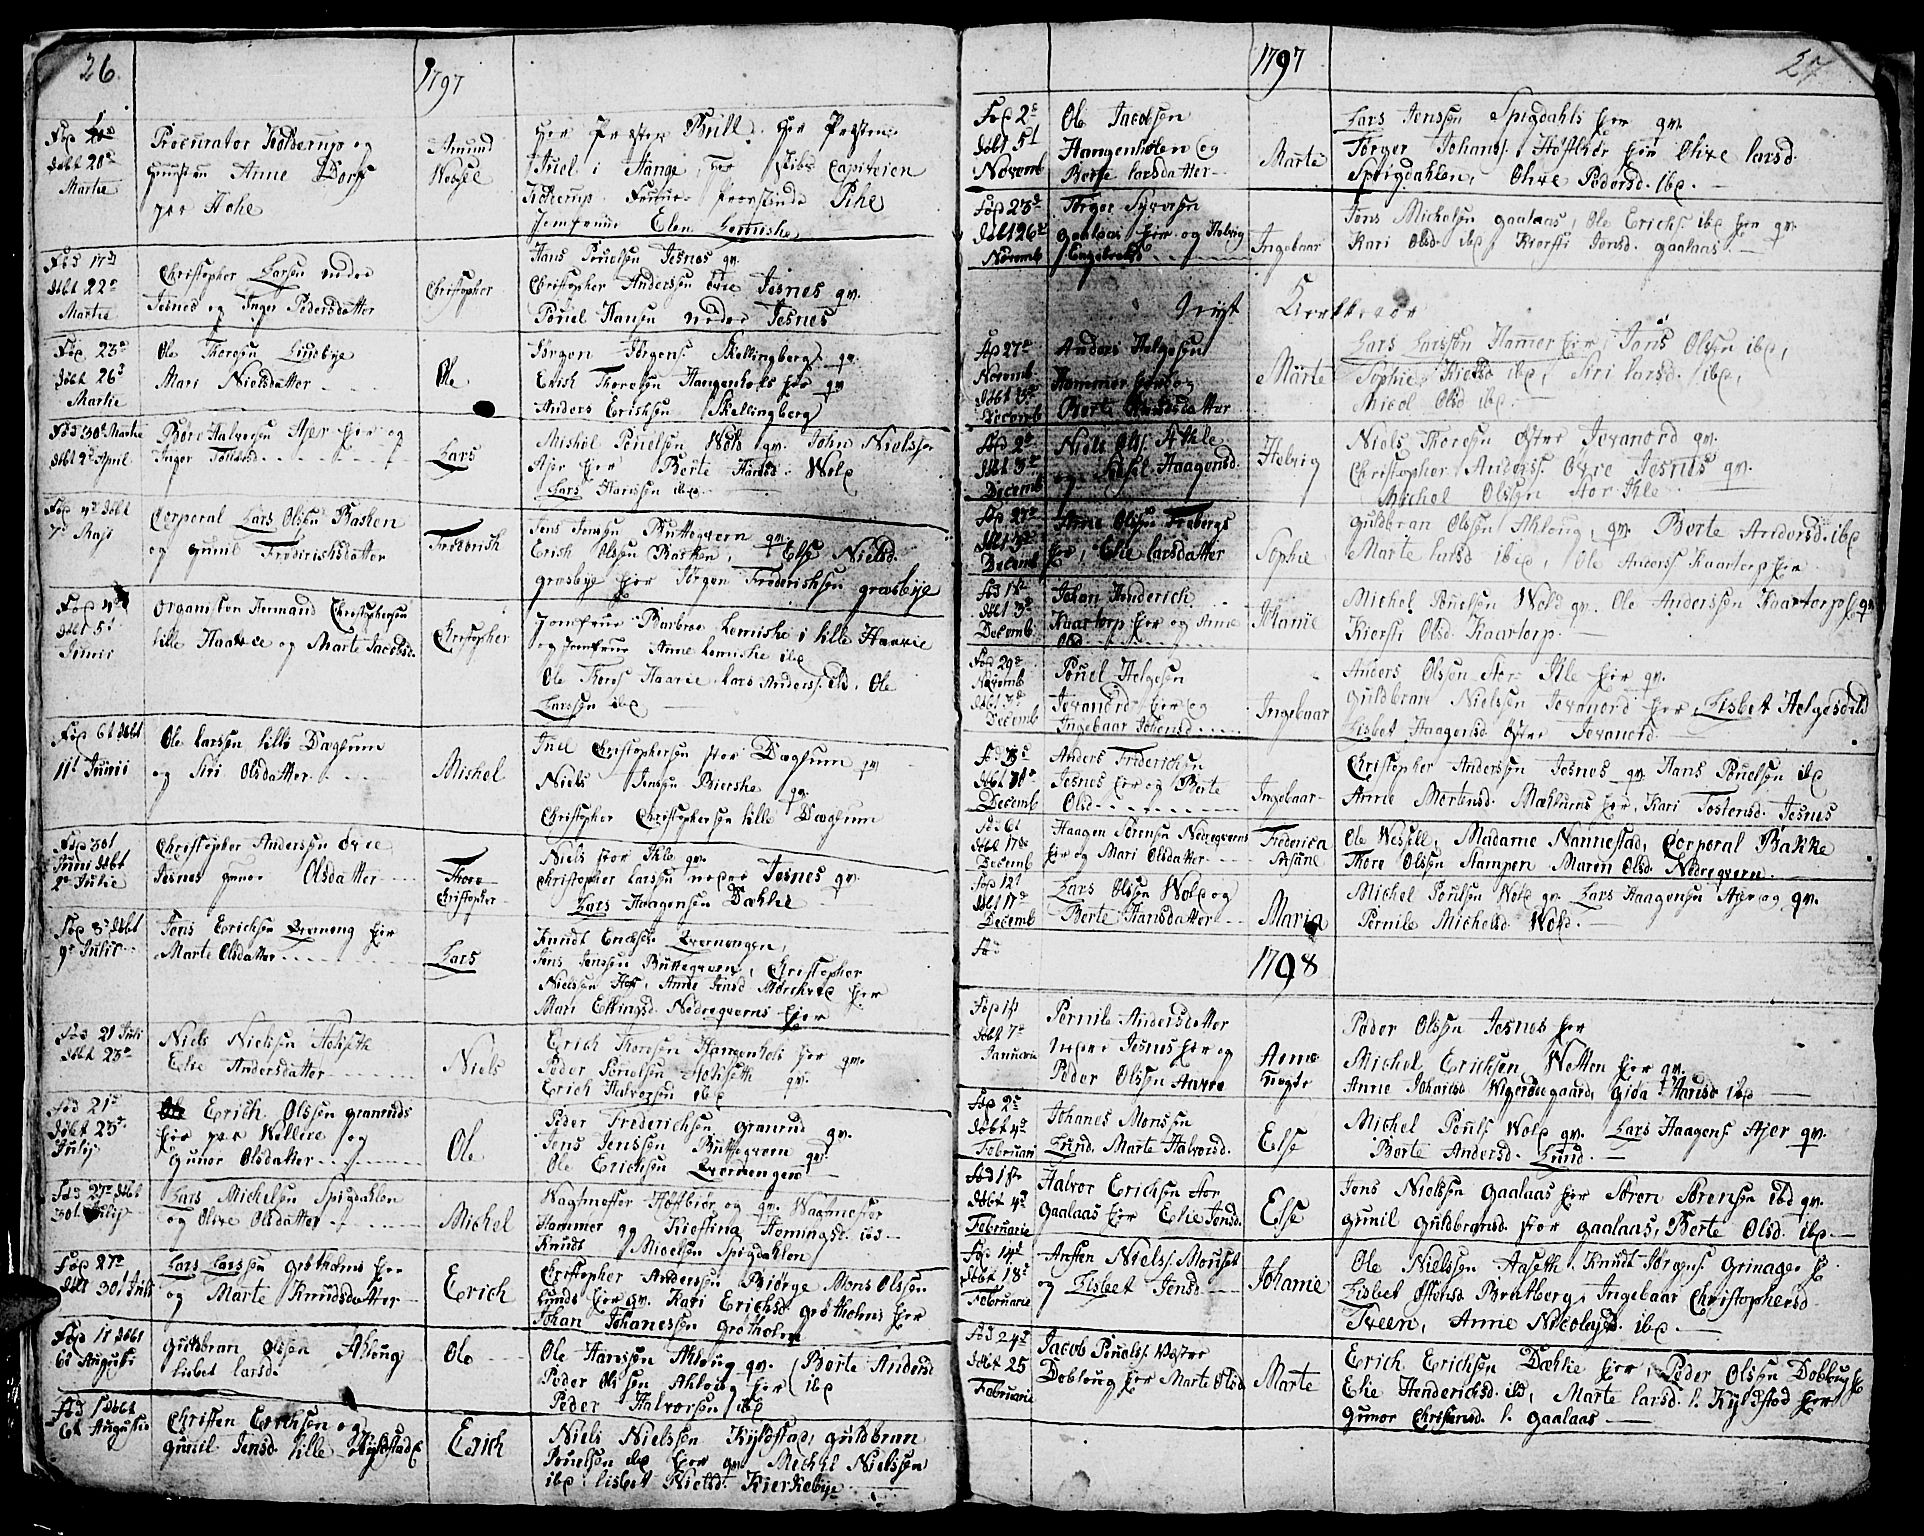 26.
1797
Død
Døbt 20de
Martie
Procurator Kolderup og
Hustru Anne Borg
paa Hohe
Amund
Wessel
Hr Præsten Bull. Hr Præsten
Juel i Stange,
Kolderup. Frue Provstinde Pihl
Jomfrue Elen Lemiche
Fød 17d
Døbt 22d
Martie
Christopher Larsen nedre
Jesnes og Inger Pedersdatter
Christopher
Hans Pouelsen Jesnes gv.
Christopher Andersen övre Jesnes gv.
Pouel Hansen nedre Jesnes
Fød 23d
Døbt 26d
Martie
Ole Thoresen Lundbye
Mari Nielsdatter
Ole
Jørgen Jørgens. Skellingberg gv.
Erich Thoresen Hangenholt hier gv
Anders Erichsen Skellingberg
Fød 30t Martie
Døbt 2d April
Bore Halvorsen Ajer hier og
Inger Tollefsd.
Lars
Michel Pouelsen Wold gv. John Nielsen
Ajer hier Berte Hansd. Wold
Lars Hansen ibd
Fød 4d Døbt
7d Maji
Corporal Lars Olsen Bakken
og Gunil Frederichsdatter
Frederich
Jens Jensen Butteqvern gv
Erich Olsen Bakken, Else Nielsd.
Græsbye hier Jørgen Frederichsen Græsbye
Fød 4d
Døbt 5t
Junii
Organisten Armand Christophersen
lille Haavie og Marte Jacobsd.
Christopher
Jomfrue Barbra Lemiche i lille Haavie
og Jomfrue Anne Lemiche ibd
Ole Thores. Haavie. Lars Anders. ibd. Ole
Larssen ibd
Fød 6t Døbt
11t Junii
Ole Larssen lille Dæglum
og Siri Olsdatter
Michel
Juel Christophersen stor Dæglum gv
Niels Jensen Bierke gv.
Christopher Christophersen lille Dæglum
Fød 30t
Juni Døbt
2d Julie
Christopher Andersen övre
Jesnes Gunor Olsdatter
Thore
Christopher
Niels stor Ihle gv.
Christopher Larsen nedre Jesnes gv.
Lars Haagensen Dæhlie
Fød 3d Døbt
9d Julie
Jens Erichsen Qverneng hier
Marte Olsdatter
Lars
Knudt Erichsen Qvernengen,
Jens Jenssen Buttegvern, Christopher
Nielssen Hof, Anne Jensd Mørchved hier
Mari Ellingsd. Nedregverns hier
Fød 21 Juli
Døbt 23d
Niels Nielsen Hohseth
Elie Andersdatter
Niels
Erich Thoresen Hangenholt hier gv.
Peder Pouelsen Hohseth gv.
Erich Halvorsen ibd
Fød 21d
Døbt 23d
Julij
Erich Olssen Granruds
hier paa Wollie og
Gunor Olsdatter
Ole
Peder Frederichsen Granrud gv.
Jens Jenssen Buttegvern gv.
Ole Erichsen Qvernengen
Fød 27d Døbt
30t Julij
Lars Michelsen Spigdahlen
og Olive Olsdatter
Michel
Wagtmester Høstbiør og gv. Wagtmester
Hammer og Kiestina Hemingsd. ibd
Knudt Micelsen Spigdahlen
Fød 27d
Døbt 30t Julii
Lars Larssen Grøtholms hier
og Marte Knudsdatter
Erich
Christopher Anderssen Biørge Mons Olssen
Lunds hier gv. Kari Erichsd Grøtholms hier
Johan Johanessen Grøtholm
Fød 1t Døbt
6t Augusti
Guldbran Olssen Ahloug
Lisbet Larsd.
Ole
Ole Hanssen Ahloug gv. Berte Andersd
Peder Olssen Ahloug hier ibd
Peder Halvorsen ibd
Fød Døbt
6t Augusti
Christen Erichsen og
Gunil Jensd. lille Kyldstad
Erich
Niels Nielssen Kyldstad, Guldbran
Pouelsen ibd hier gv Mechel Nielssen
ibd, Lisbet Nielsd. Kierkebye
1797
27
Fød 2d
Døbt 5t
Novemb
Ole Jacobsen
Hangenholen og
Berte Larsdatter
Marte
Lars Jenssen Spigdahls hier gv.
Tørger Johans. Høstbiør hier Olive Larsd.
Spigdahlen, Olive Pedersd. ibd.
Fød 23d
Døbt 26d
Novemb
Tørger Syversen
Gaalaas hier og Helvig
Engebretsd.
Ingebaar
Jens Michelsen Gaalaas, Ole Erichs. ibd hier gv.
Kari Olsd. ibd, Kiersti Jensd. Gaalaas
Nyt Kirkeaar
Fød 27d
Novemb
Døbt 3d
Decemb
Anders Helgesen
Hammer hier og
Berte Knudsdatter
Marte
Lars Larssen Hammer hier, Jens Olssen ibd,
Sophie Kield. ibd, Siri Larsd. ibd,
Micel Olsd ibd.
Fød 2d
Døbt 3d
Decemb
Niels Ols. Ihle
og Lisbet Haagensd.
Helvig
Niels Thoresen østre Jevanord gv.
Christopher Anders. Övre Jesnes gv.
Michel Olssen stor Ihle
Fød 27d
Døbt 3d
Decemb
Arne Olssen Frebergs
hier, Elie Larsdatter
Sophie
Guldbran Olssen Ahloug, gv. Berte Andersd. ibd
Marte Larsd ibd, Ole Anders. Kaartorp hier
Fød 1d
Døbt 3d
Decemb
Johan Henderich
Kaartorp hier og Anne
Olsd
Johanie
Michel Pouelsen Wold gv. Ole Anderssen Kaartorp gv
Kiersti Olsd. Kaartorp.
Fød 29d
Novemb
Døbt 3d
Decemb
Pouel Helgesen
Jevanord hier og
Ingebaar Johansd.
Ingebaar
Anders Olssen stor Ihle hier gv.
Guldbran Nielssen Jevanord hier, Lisbet Helgesd ibd
Lisbet Haagensd østre Jevanord.
Fød
Døbt
Decemb
Anders Frederichsen
Jesnes hier og Berte
Olsd
Ingebaar
Christopher Anderssen Jesnes gv Hans Pouelsen ibd
Anne Mortensd. Mæhlums hier, Kari Tostensd. Jesnes
Fød 6t
Døbt 17d
Decemb
Haagen Sørensen Nedregverns
hier og Mari Olsdatter
Frederica
Ole Wessell, Madame Nannestad, Corporal Bakke
Thore Olssen Stampen Maren Olsd. Nedregvern.
Fød 12t
Døbt 17d
Decemb
Lars Olssen Wold og
Berte Hansdatter
Maria
Michel Poulsen Wold gv. Lars Haagensen Ajer og gv.
Pernile Michelsd. Wold.
Fød
1798
Fød 1t
Døbt 7d
Januarie
Pernile Andersdatter
nedre Jesnes hier og
Peder Olssen
Anne
Peder Olssen Jesnes hier
Michel Erichsen Wetten hier gv.
Anne Johansd Wigerdsegaard, Gida Hansd ibd
Fød 2d
Døbt 4d
Februari
Johanes Monssen
Lund, Marte Halvorsd.
Else
Michel Pouls Wold gv. Lars Haagens. Ajer gv.
Berte Andersd. Lund.
Fød 1d
Døbt 4d
Februarie
Halvor Erichsen stor
Gaalaas hier Elie Jensd.
Else
Jens Nielssen Gaalaas hier Søren Sørensen ibd gv.
Gunil Guldbransd. stor Gaalaas, Berte Olsd. ibd.
Fød 14d
Døbt 18d
Februarie
Anssen Niels. Monset
og Lisbet Jensd
Johanie
Ole Nielssen Aaseth. Knudt Jørgens Grinager h.
Lisbet Ostensd. Bratberg, Ingebaar Christophersd.
Tveen, Anne Nicolajsd. ibd.
Fød 24d
Døbt 25
Februarie
Jacob Pouels. Vestre
Dobloug hier Marte Olsd
Marte
Erich Erichsen Dæhlie hier, Peder Olssen Dobloug h
Elie Henderichsd. ibd, Marte Larsd. l. Kyldstad hier
Gunor Christensd. l. Gaalaas